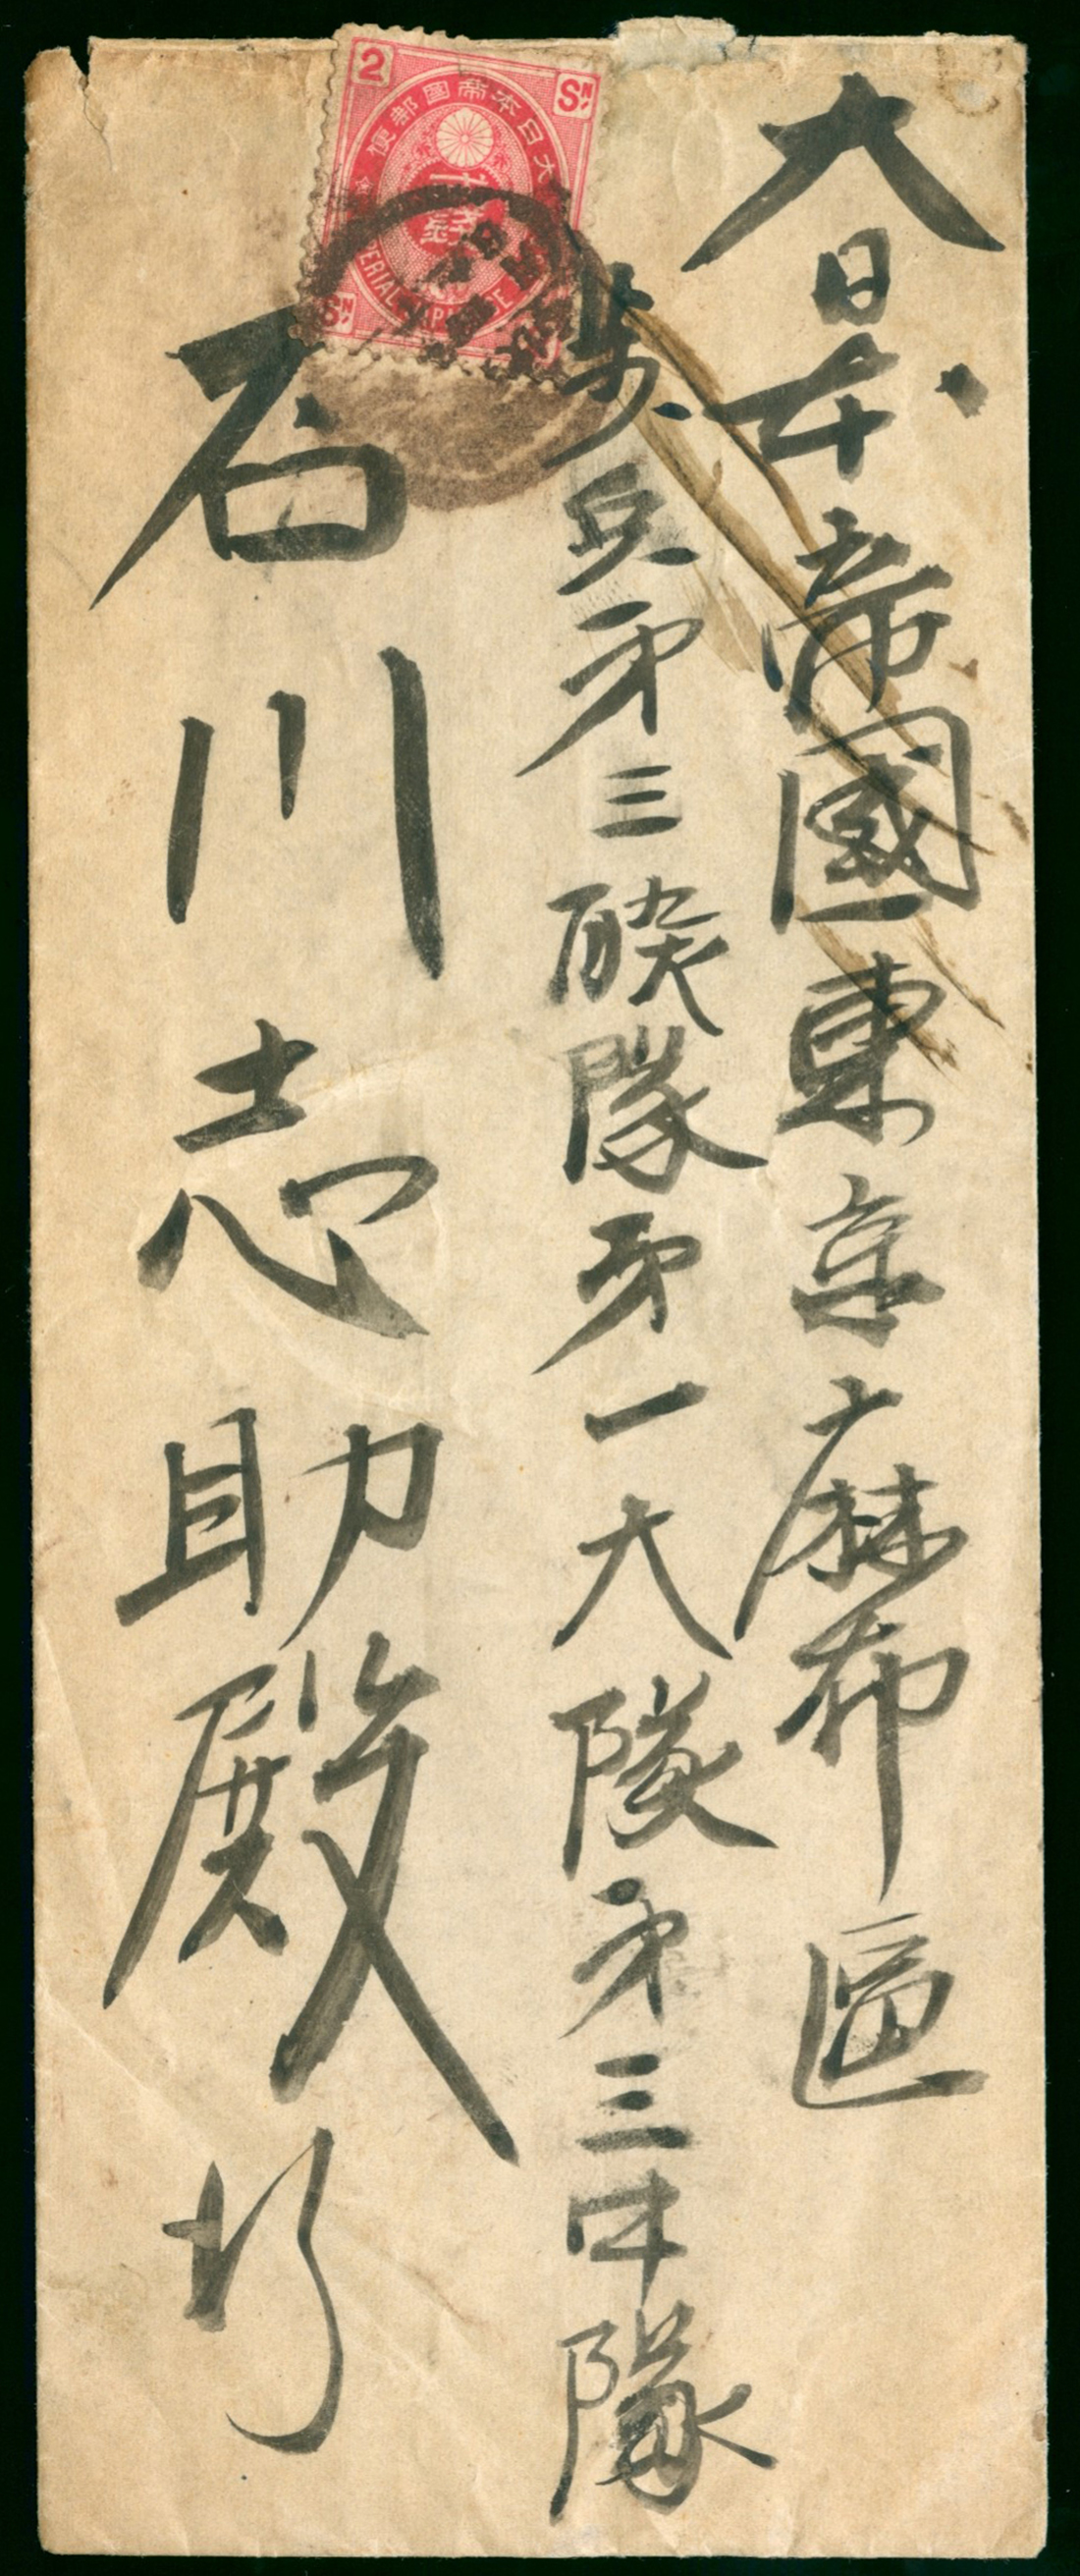 大日本帝國東京麻布區
歩兵第三聯隊第一大隊第三中隊
石川志助殿
2 SN
大日本帝國郵便
貳錢
IMPERIAL JAPANESE
SN